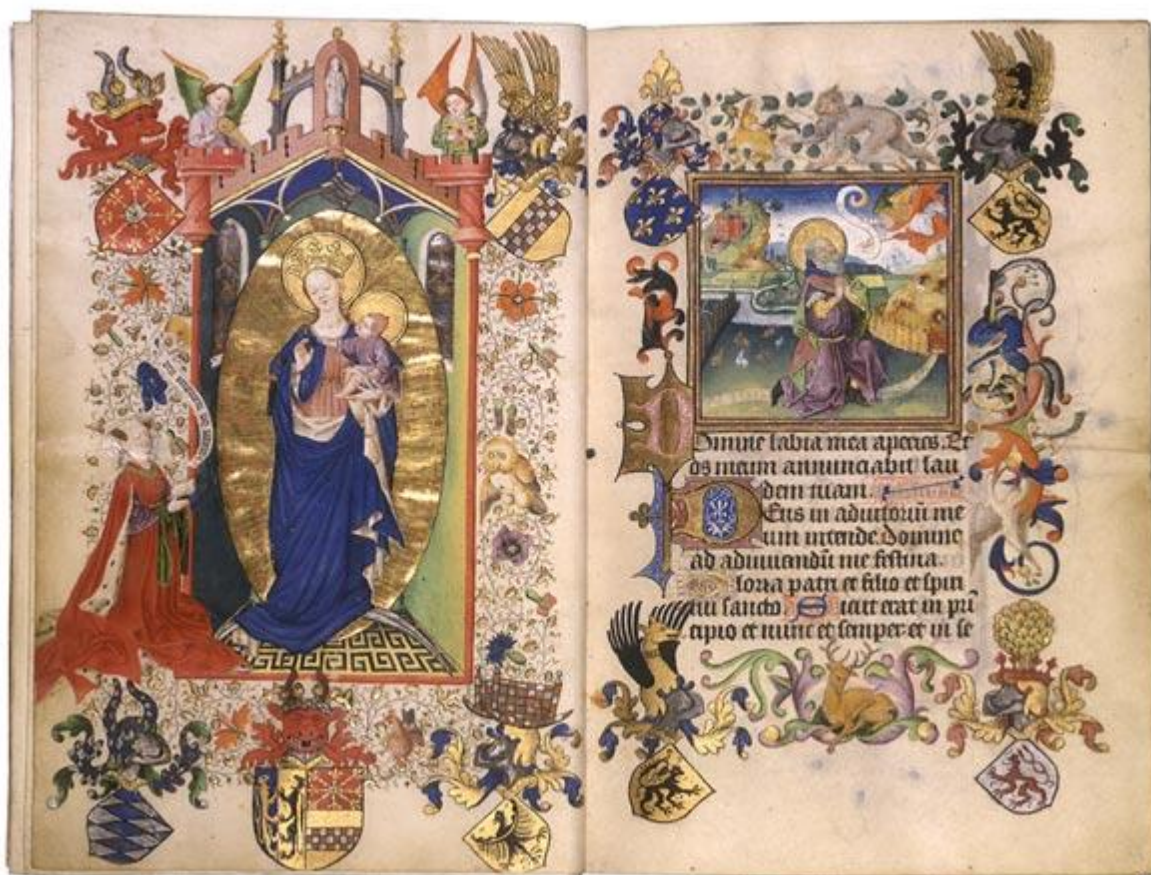 Domine labia mea aperies. Et
os meum annunciabit lau
dem tuam.
Deus in adiutoriū me
um intende. Domine
ad adiuuandū me festina.
Gloria patri et filio et spiri
tui sancto. Sicut erat in pri
cipio et nunc et semper et in se